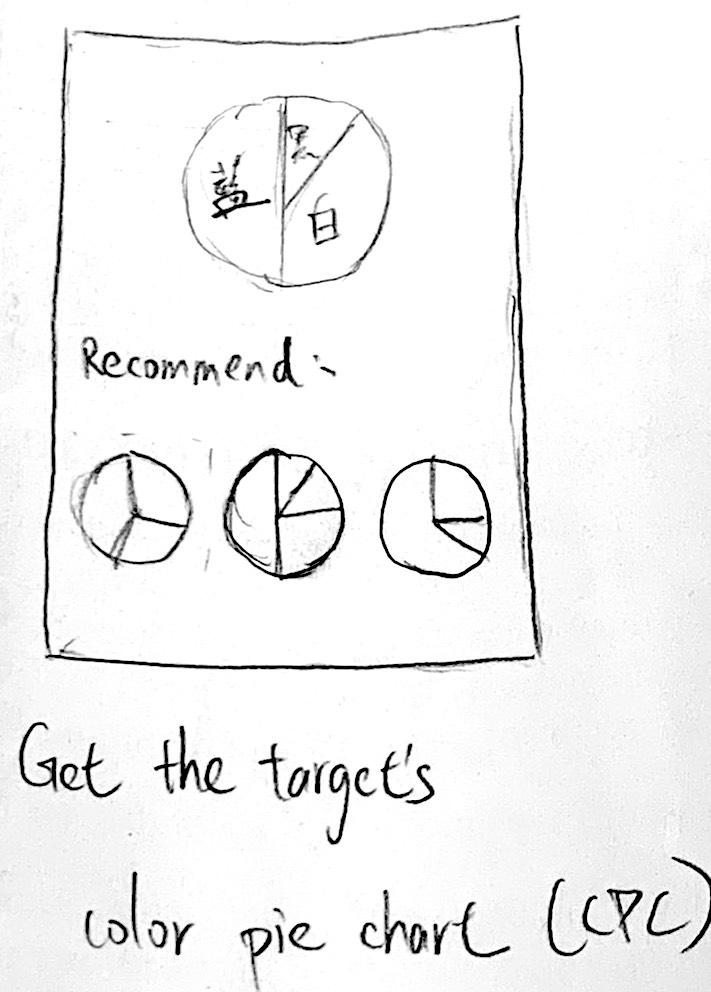 藍
黑
白
Recommend:
Get the target's
color pie chart (CPC)